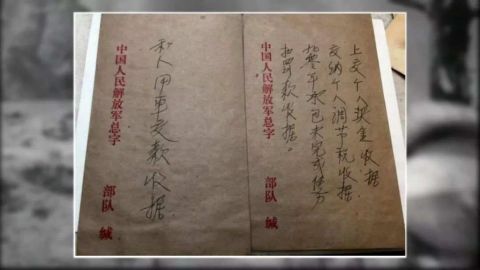 上交个人奖金收据.
交纳个人调节税收据
年承包未完成任务
扣罚款收据。
中国人民解放军总字 部队 缄
私人用车交款收据.
中国人民解放军总字 部队 缄